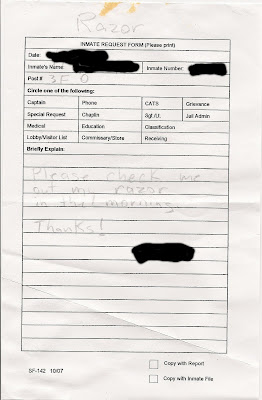 Razor
INMATE REQUEST FORM (Please print)
Date:
Inmate's Name: Inmate Number:
Pod # 3F O
Circle one of the following:
Captain Phone CATS Grievance
Special Request Chaplin Sgt./Lt. Jail Admin
Medical Education Classification
Lobby/Visitor List Commissary/Store Receiving
Briefly Explain:
Please check me
out my razor
in the morning
Thanks!
Copy with Report
SF-142 10/07
Copy with Inmate File